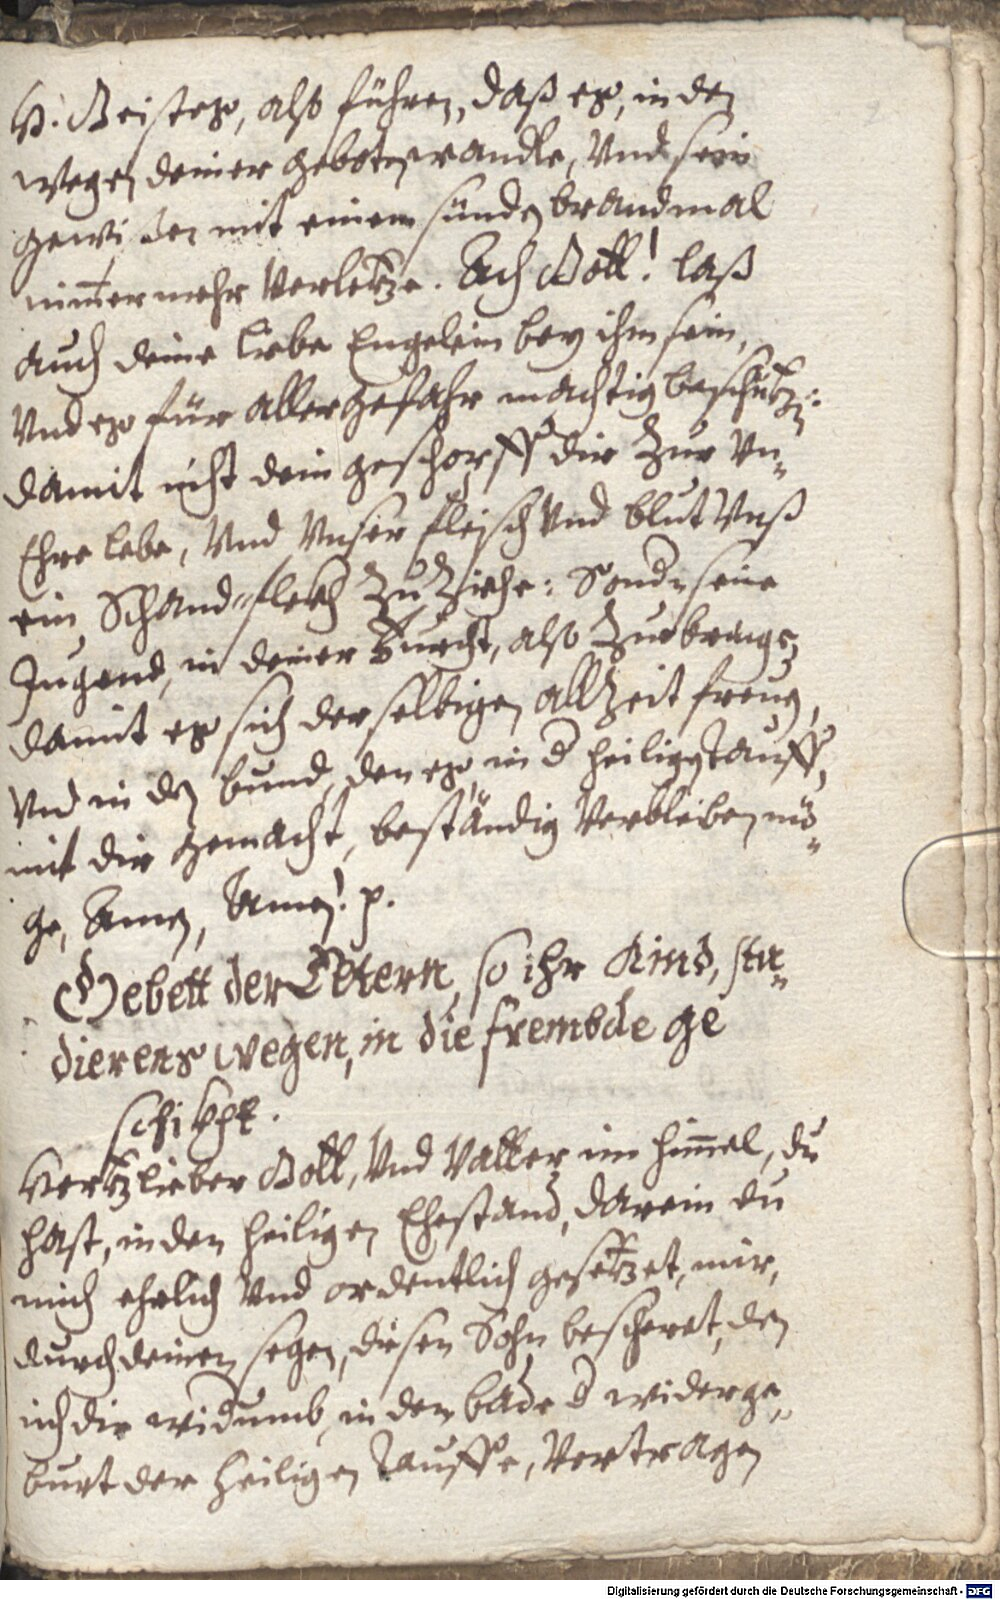 H. Geistes, also führen, daß es, in den
wegen deiner geboten wandle, Vnd sein
gewi den mit einem sünden brandmal
nimmermehr Verletze. Ach Gott! laß
auch deine liebe Engelein bey ihm sein,
Vnd es für aller gefahr mächtig beschützen:
damit nicht dein geschöpff dir zur Vn„
Ehre lebe, Vnd Vnser fleisch Vnd blut Vnß
ein Schand-fleckh zu ziehe: Sondn seine
Jugend, in deiner Furcht, also zubringe,
damit es sich derselbigen allzeit freuen,
Vnd in den bund, den es, in d heiligen Tauff,
mit dir gemacht, beständig Verbleiben mö„
ge, Amen, Amen! p.
Gebett der Eltern, so ihr Kind, stu„
dierens wegen, in die frembde ge
schikht.
Hertzlieber Gott, Vnd Vatter im himmel, du
hast, in den heiligen Ehestand, darein du
mich ehrlich Vnd ordentlich gesetzet, mir,
durch deinen segen, diesen Sohn bescheret, den
ich dir widumb, in dem bade d widerge„
burt der heiligen Tauffe, Vortragen